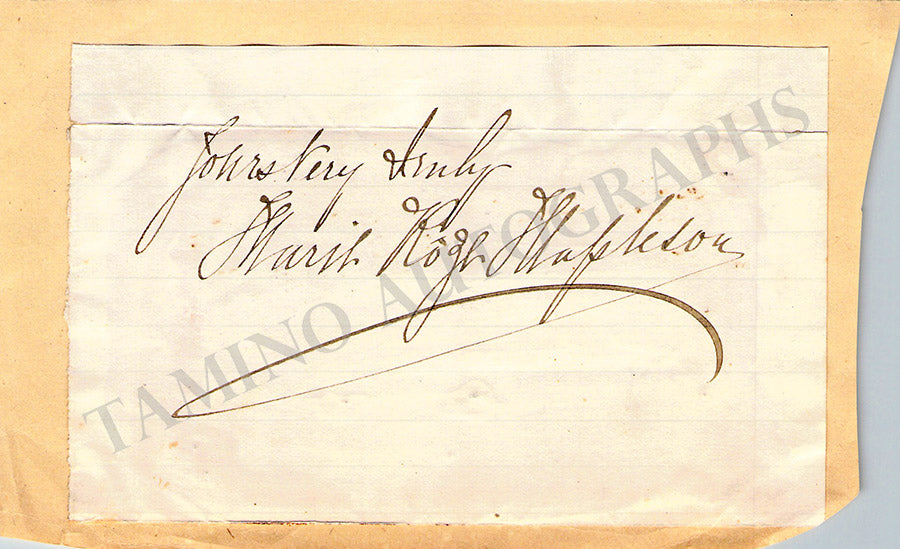 Yours Very Truly
Marie Rôze Mapleson
TAMINO AUTOGRAPHS